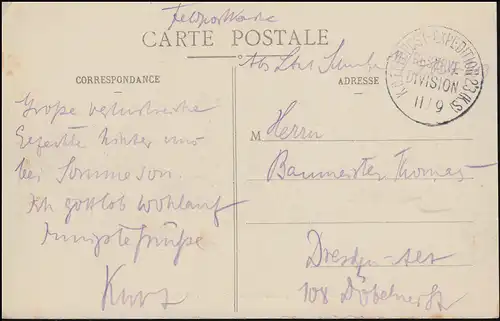 Feldpostkarte
CARTE POSTALE
K.D. FELDPOST-EXPEDITION 23.(K.S.)
RESERVE
DIVISION
11/9
Abs Ltnt
CORRESPONDANCE
ADRESSE
Große verlustreiche
Gefechte hinter uns
bei Sommeson.
Ich gottlob wohlauf
Innigste Grüße
Kurt
M Herrn
Baumeister Thomas
Dresden-Alt
108 Döbelnerstr